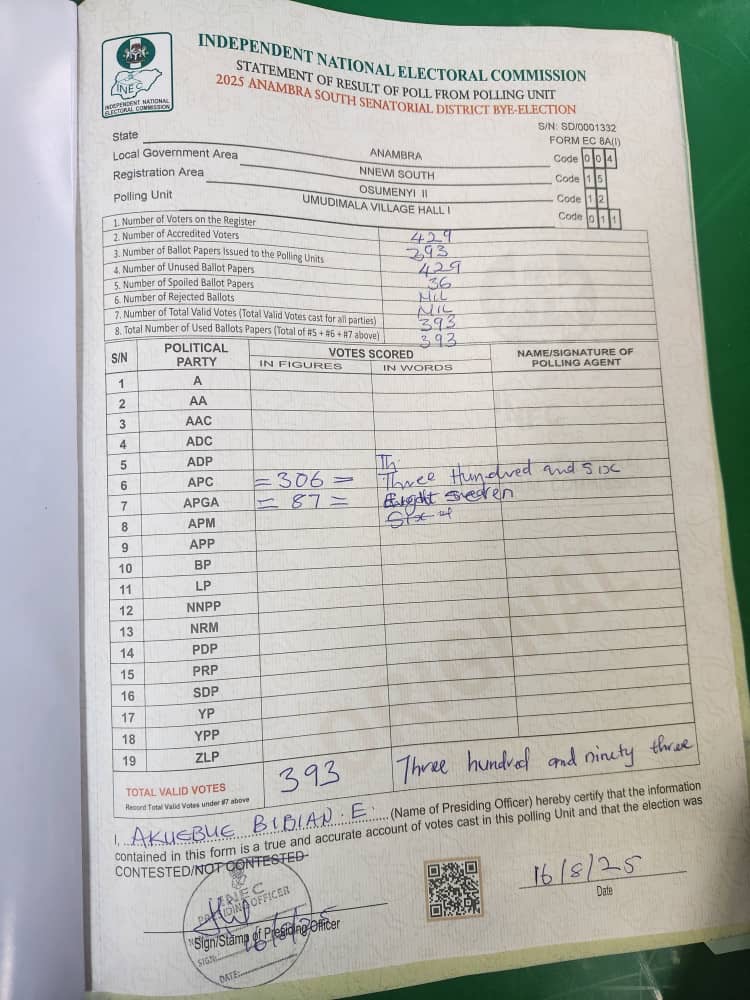 INEC
INDEPENDENT NATIONAL
ELECTORAL COMMISSION
INDEPENDENT NATIONAL ELECTORAL COMMISSION
STATEMENT OF RESULT OF POLL FROM POLLING UNIT
2025 ANAMBRA SOUTH SENATORIAL DISTRICT BYE-ELECTION
S/N: SD/0001332
FORM EC 8A(I)
State ANAMBRA Code 004
Local Government Area NNEWI SOUTH Code 15
Registration Area OSUMENYI II Code 12
Polling Unit UMUDIMALA VILLAGE HALL I Code 011
1. Number of Voters on the Register 429
2. Number of Accredited Voters 393
3. Number of Ballot Papers Issued to the Polling Units 429
4. Number of Unused Ballot Papers 36
5. Number of Spoiled Ballot Papers NIL
6. Number of Rejected Ballots NIL
7. Number of Total Valid Votes (Total Valid Votes cast for all parties) 393
8. Total Number of Used Ballots Papers (Total of #5 + #6 + #7 above) 393
S/N POLITICAL PARTY VOTES SCORED NAME/SIGNATURE OF POLLING AGENT
IN FIGURES IN WORDS
1 A
2 AA
3 AAC
4 ADC
5 ADP Th
6 APC =306= Three Hundred and six
7 APGA =87= Eight seven
8 APM Six
9 APP
10 BP
11 LP
12 NNPP
13 NRM
14 PDP
15 PRP
16 SDP
17 YP
18 YPP
19 ZLP
TOTAL VALID VOTES 393 Three hundred and ninety three
Record Total Valid Votes under #7 above
I, AKUEBUE BIBIAN.E. (Name of Presiding Officer) hereby certify that the information
contained in this form is a true and accurate account of votes cast in this polling Unit and that the election was
CONTESTED/NOT CONTESTED
INEC
PRESIDING OFFICER
16/8/25
Sign/Stamp of Presiding Officer
SIGN:
DATE:
16/8/25
Date
ORIGINAL